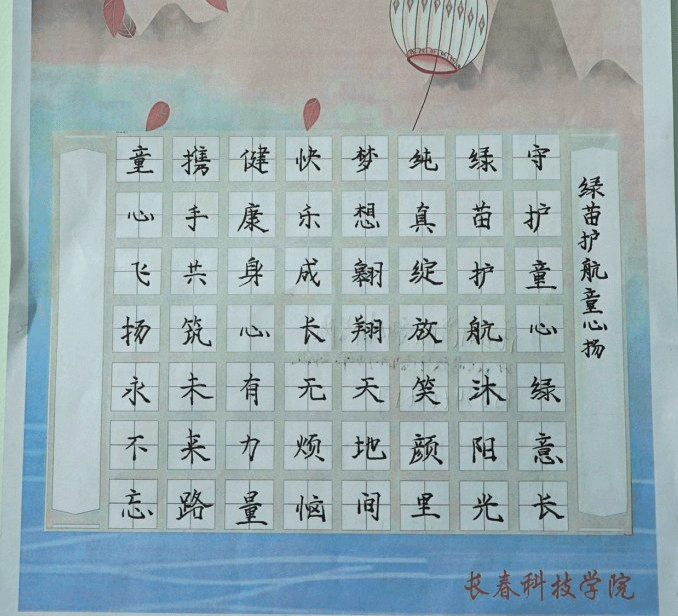 绿苗护航童心扬
守护童心绿意长
绿苗护航沐阳光
纯真绽放笑颜里
梦想翱翔天地间
快乐成长无烦恼
健康身心有力量
携手共筑未来路
童心飞扬永不忘
长春科技学院